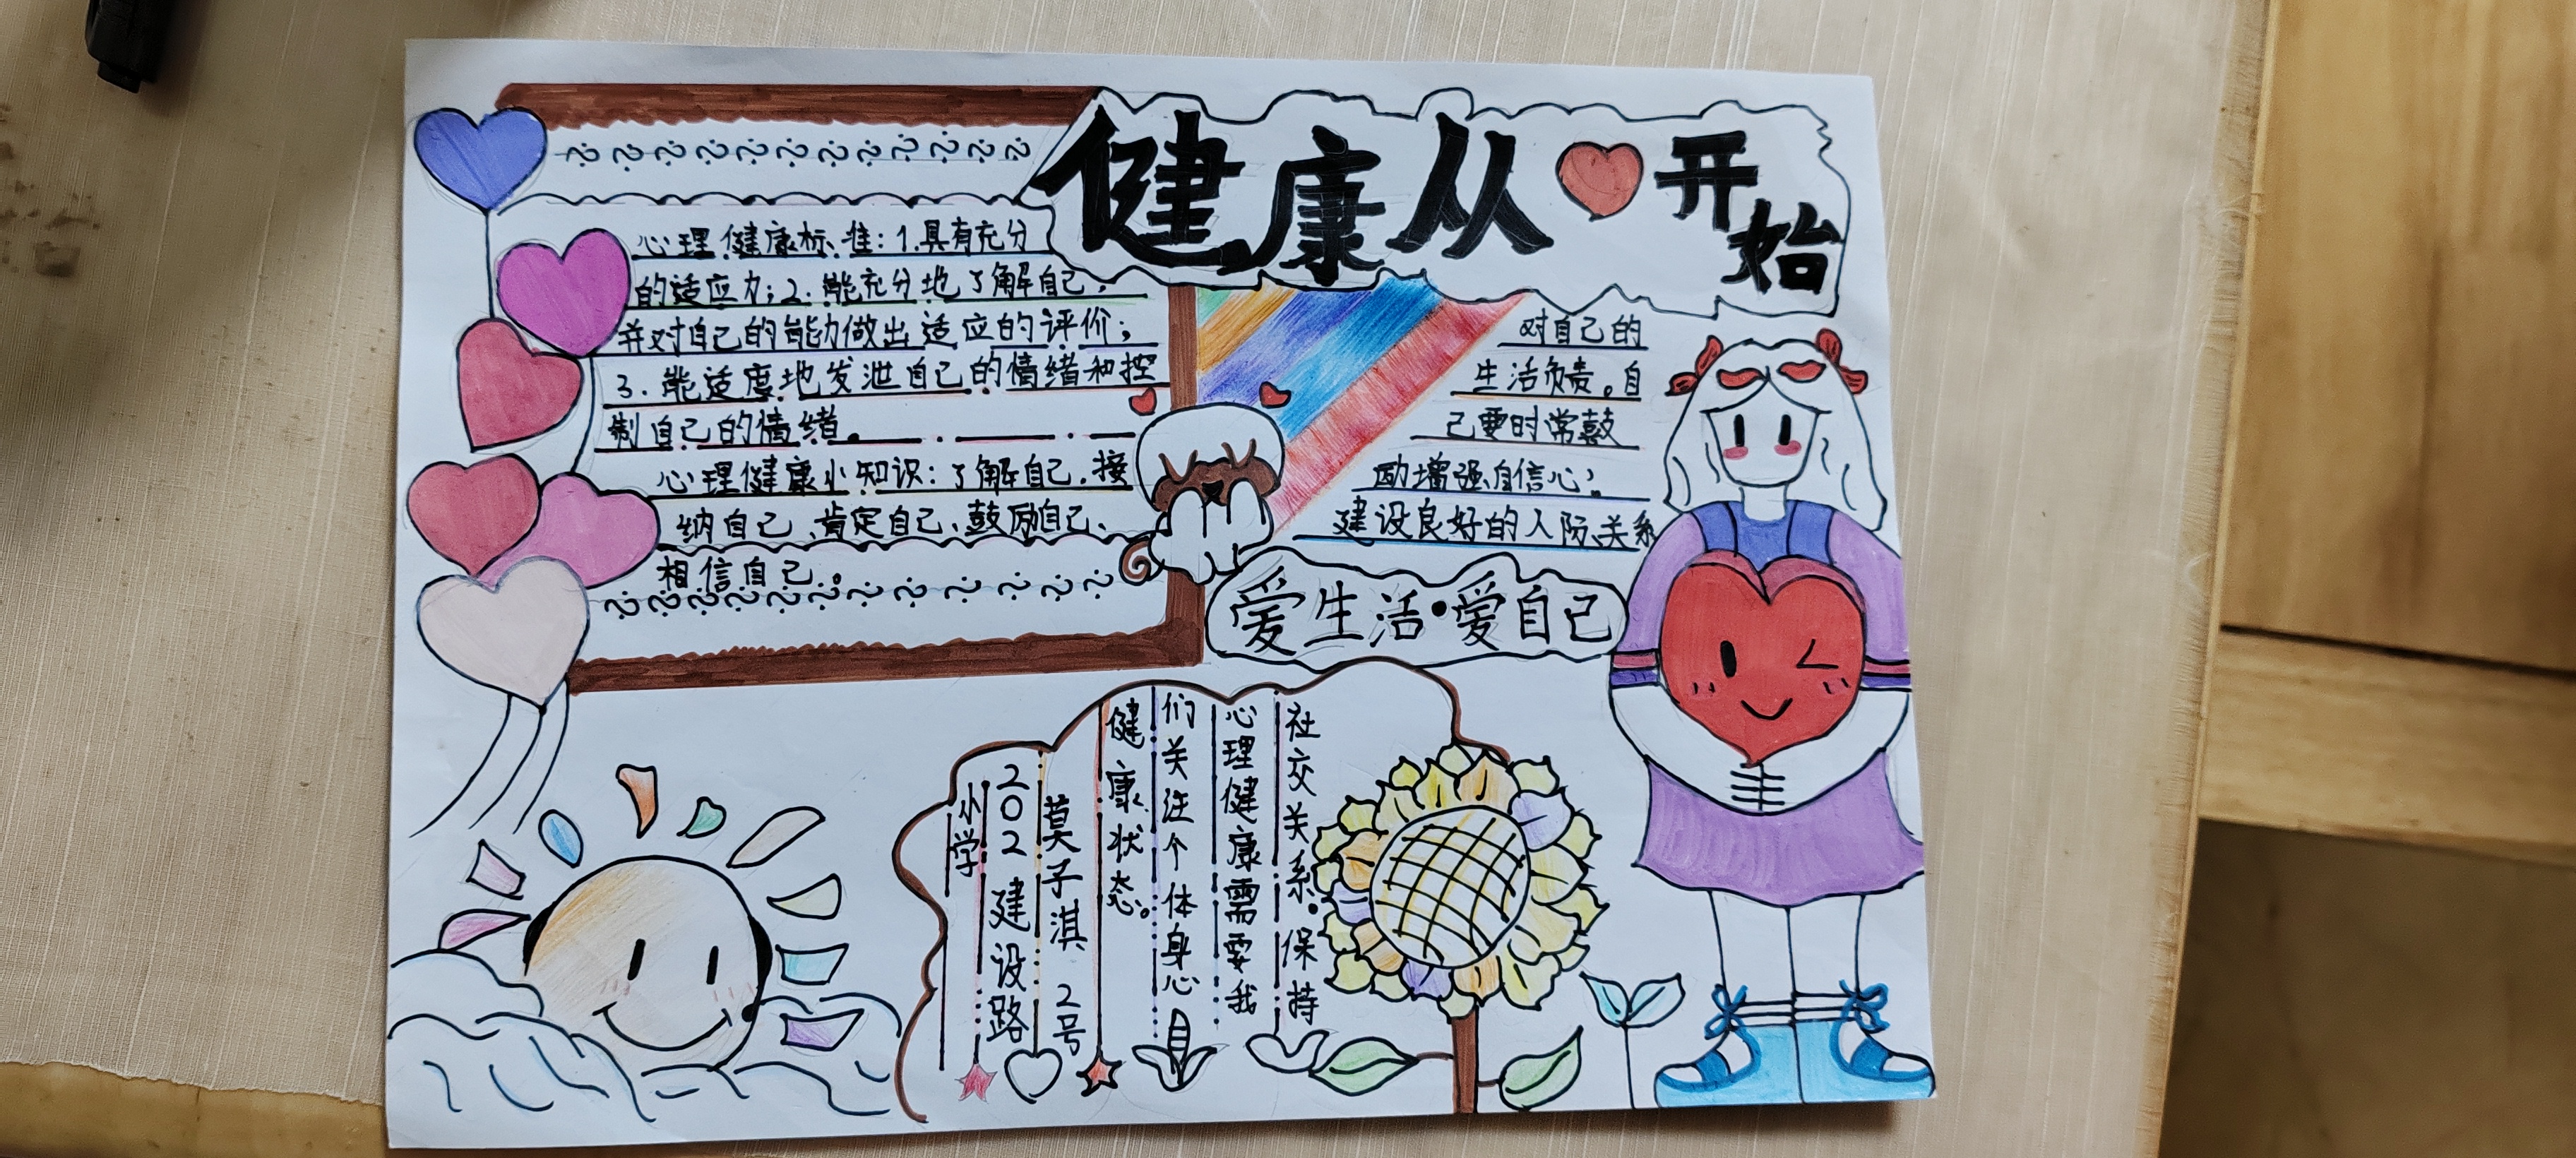 健康从❤开始
心理健康标准：1.具有充分
的适应力；2.能充分地了解自己，
并对自己的能力做出适应的评价；
3.能适度地发泄自己的情绪和控
制自己的情绪。
心理健康小知识：了解自己，接
纳自己、肯定自己、鼓励自己、
相信自己。
对自己的
生活负责。自
己要时常鼓
励增强自信心，
建设良好的人际关系
爱生活·爱自己
社交关系。保持
心理健康需要我
们关注个体身心
健康状态。
莫子淇 2号
202 建设路
小学